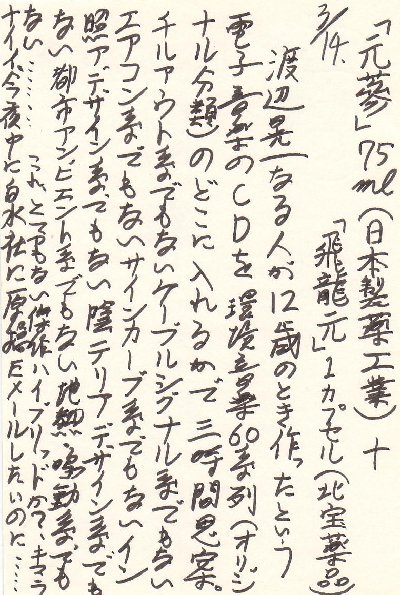 3/14.
「元蔘」75ml(日本製薬工業)+
「飛龍元」1カプセル(北宝薬品)
渡辺晃一なる人が12歳のとき作ったという
電子音楽のCDを環境音楽60系列(オリジ
ナル分類)のどこに入れるかで三時間思案。
チルアウト系でもないケーブルシグナル系でもない
エアコン系でもないサインカーブ系でもないイン
照アデザイン系でもない陰テリアデザイン系でも
ない都市アンビエント系でもない地熱鳴動系でも
ない……… これ、とてもない傑作ハイブリッドか?、キラ
ナイイ、今夜中に白水社に原稿Eメールしたいのに……